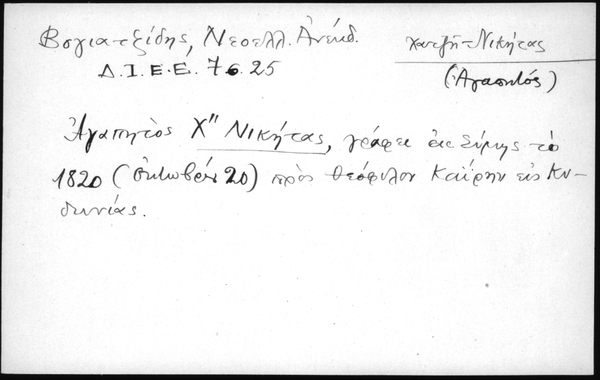 Βογιατζίδης, Νεοελλ. Ἀνέκδ.
Δ.Ι.Ε.Ε. 7 σ. 25
Χατζῆ-Νικήτας
(Ἀγαπητός)
Ἀγαπητὸς Χ" Νικήτας, γράφει ἐκ Σύμης τὸ
1820 (Ὀκτωβρ. 20) πρὸς Θεόφιλον Καΐρην εἰς Κυ-
δωνίας.